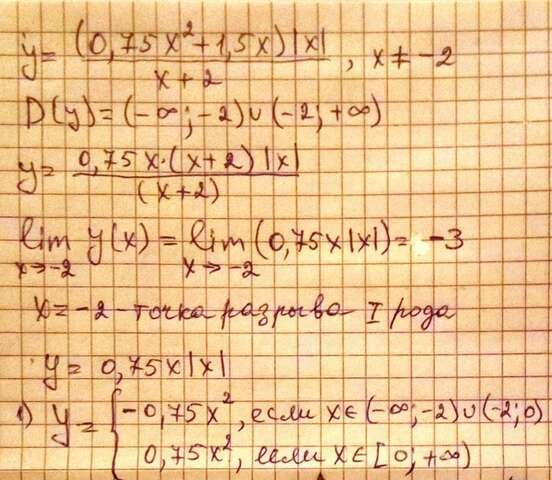 y = (0,75x²+1,5x)|x| / x+2 , x ≠ -2
D(y) = (-∞; -2) ∪ (-2; +∞)
y = 0,75x·(x+2)|x| / (x+2)
lim x→-2 y(x) = lim x→-2 (0,75x|x|) = -3
x = -2 - точка разрыва I рода
y = 0,75x|x|
1) y = { -0,75x², если x∈(-∞;-2)∪(-2;0)
0,75x², если x∈[0;+∞)